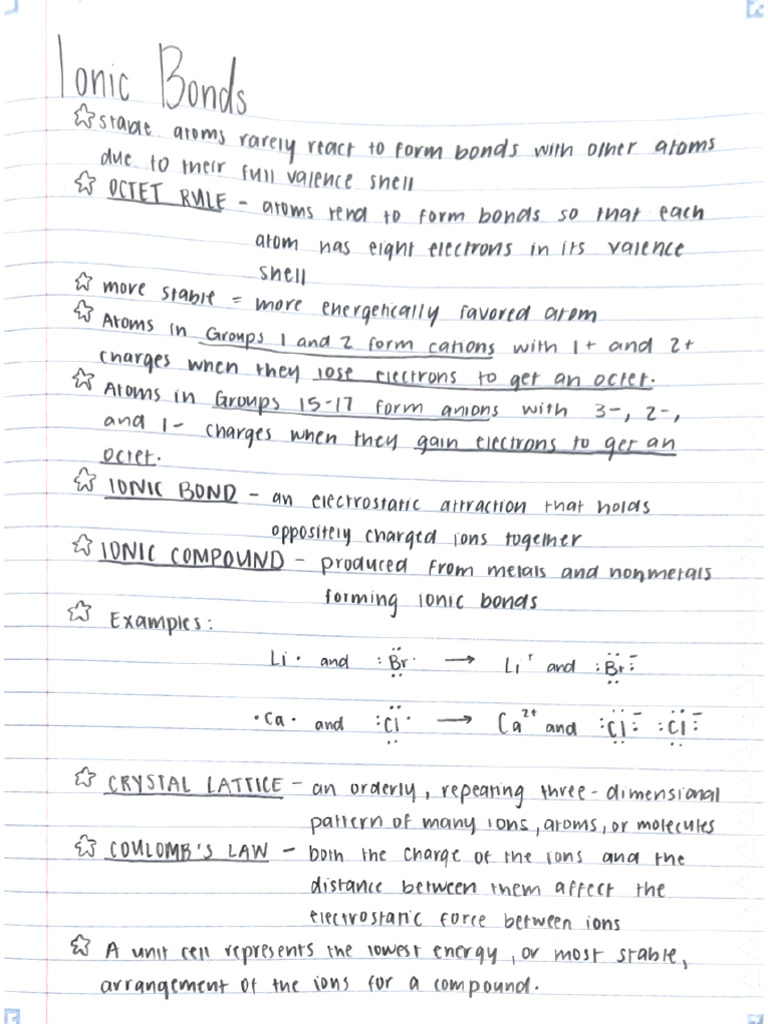 Ionic Bonds
☆ stable atoms rarely react to form bonds with other atoms
due to their full valence shell
☆ OCTET RULE - atoms tend to form bonds so that each
atom has eight electrons in its valence
shell
☆ more stable = more energetically favored atom
☆ Atoms in Groups 1 and 2 form cations with 1+ and 2+
charges when they lose electrons to get an octet.
☆ Atoms in Groups 15-17 form anions with 3-, 2-,
and 1- charges when they gain electrons to get an
octet.
☆ IONIC BOND - an electrostatic attraction that holds
oppositely charged ions together
☆ IONIC COMPOUND - produced from metals and nonmetals
forming ionic bonds
☆ Examples:
Li· and :Br· → Li⁺ and :Br:⁻
·Ca· and :Cl· → Ca²⁺ and :Cl:⁻ :Cl:⁻
☆ CRYSTAL LATTICE - an orderly, repeating three-dimensional
pattern of many ions, atoms, or molecules
☆ COULOMB'S LAW - both the charge of the ions and the
distance between them affect the
electrostatic force between ions
☆ A unit cell represents the lowest energy, or most stable,
arrangement of the ions for a compound.